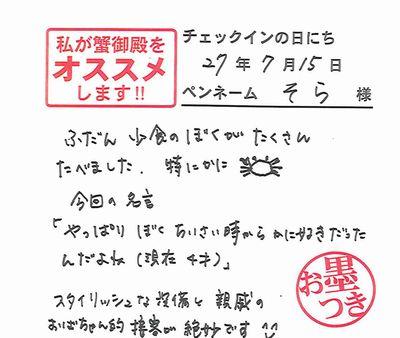 私が蟹御殿を
オススメ
します!!
チェックインの日にち
27年7月15日
ペンネーム そら 様
ふだん 少食のぼくが たくさん
たべました. 特にかに
今回の名言
「やっぱり ぼく ちいさい時から かに好きだった
んだよね (現在 4才)」
お墨つき
スタイリッシュな設備と 親感の
おばちゃん的 接客が 絶妙です